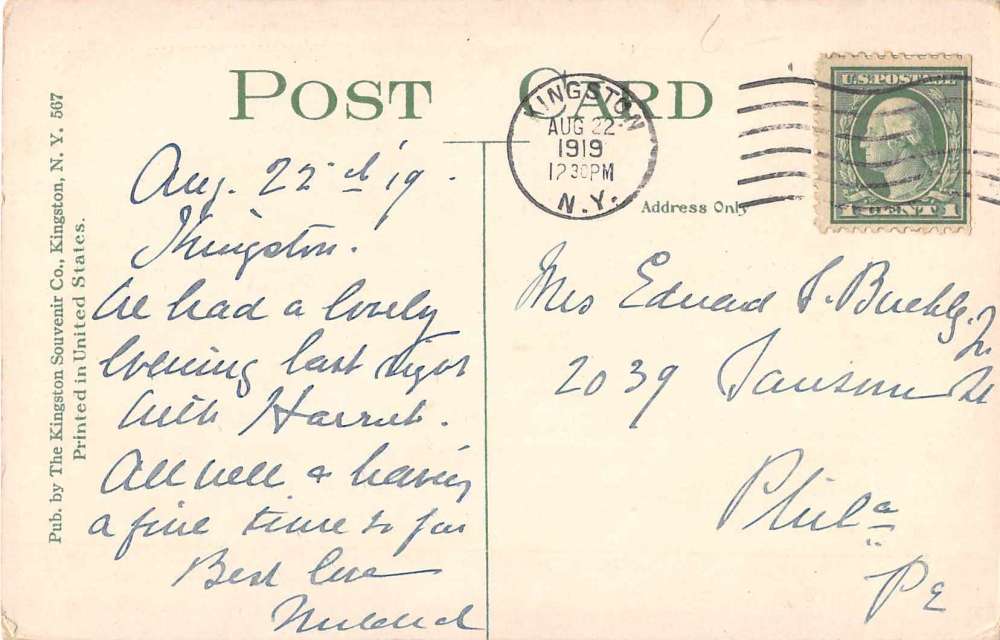 POST CARD
Pub. by The Kingston Souvenir Co., Kingston, N. Y. 567
Printed in United States.
KINGSTON
AUG 22
1919
12 30 PM
N.Y.
U.S. POSTAGE
1 CENT 1
Address Only
Aug. 22d '19.
Kingston.
We had a lovely
evening last night
with Harriet.
All well & having
a fine time so far
Best love
Mildred
Mrs Edward S. Buchly. Jr.
2039 Sansom St
Phila
Pa